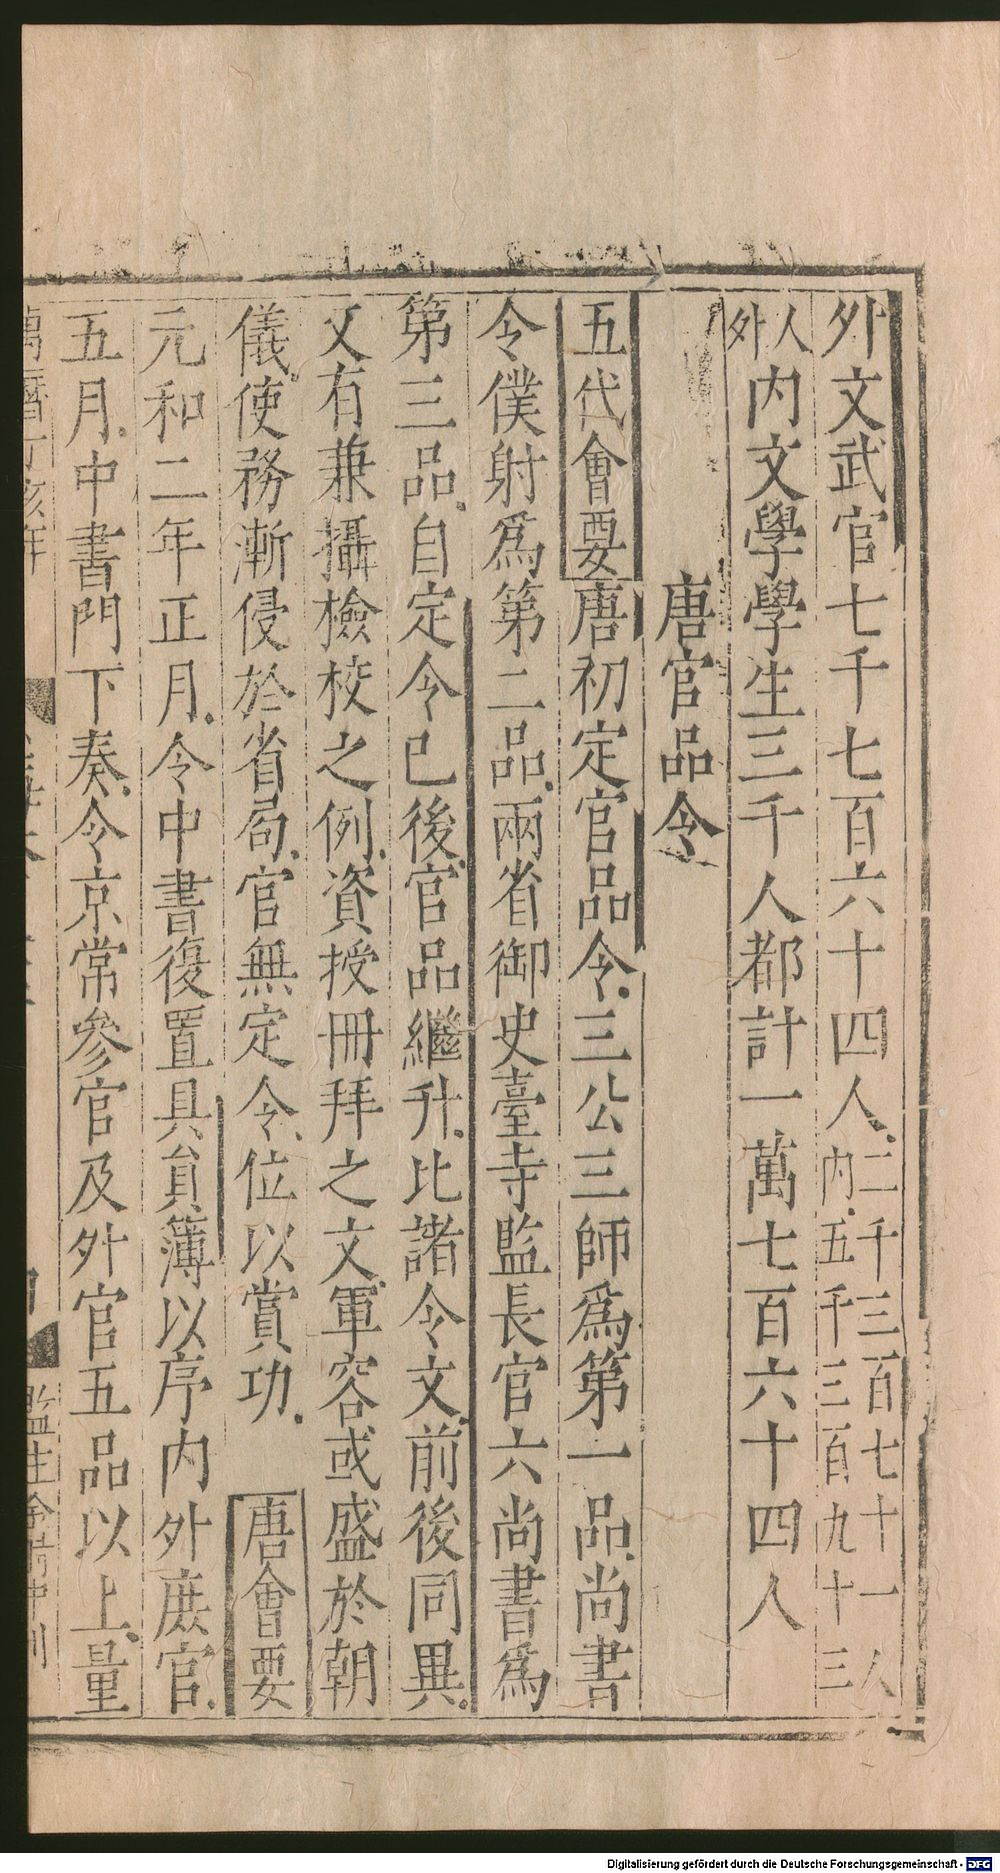 外文武官七千七百六十四人二千三百七十一人内五千三百九十三
人外内文學學生三千人都計一萬七百六十四人
唐官品令
五代會要唐初定官品令三公三師爲第一品尚書
令僕射爲第二品兩省御史臺寺監長官六尚書爲
第三品自定令已後官品繼升比諸令文前後同異
又有兼攝檢校之例資授冊拜之文軍容或盛於朝
儀使務漸侵於省局官無定令位以賞功唐會要
元和二年正月令中書復置具貟簿以序内外庶官
五月中書門下奏令京常參官及外官五品以上量
Digitalisierung gefördert durch die Deutsche Forschungsgemeinschaft - DFG